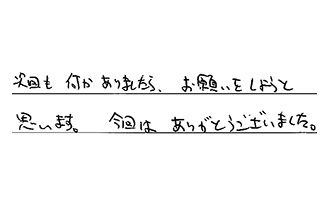 次回も何かありましたら、お願いをしようと
思います。 今回は ありがとうございました。